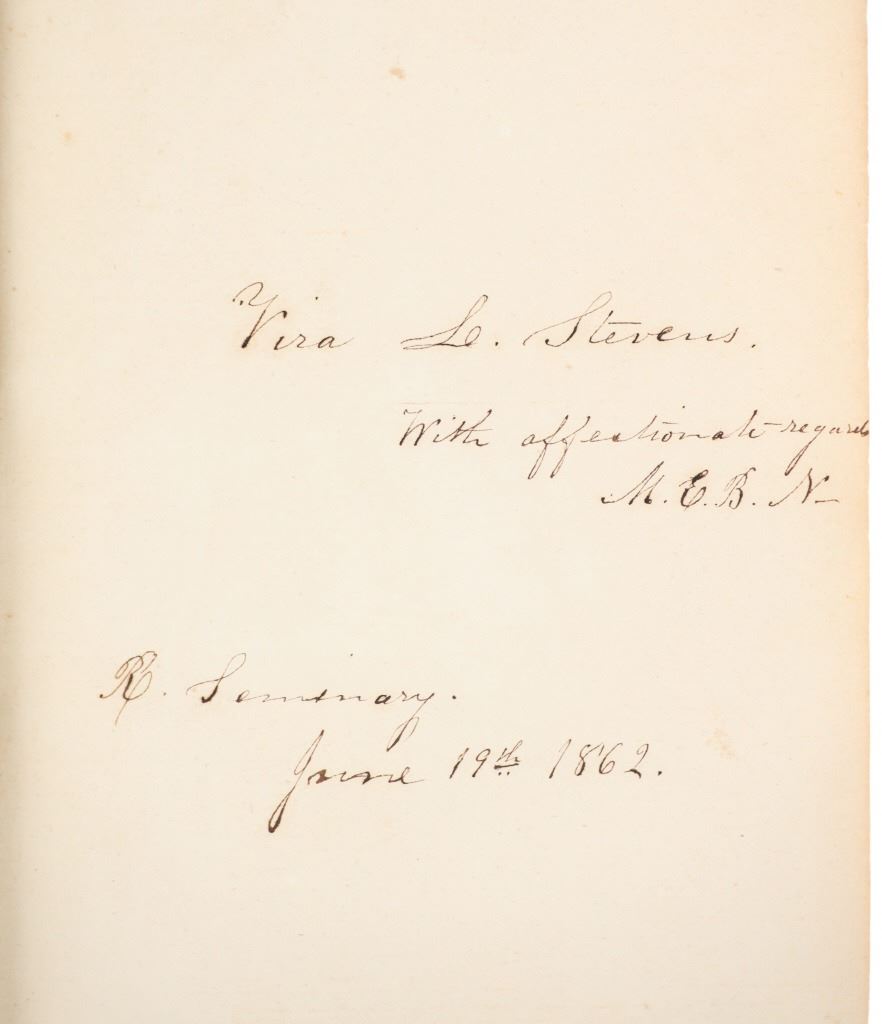 Vira L. Stevens.
With affectionate regards
M. E. B. N-
R. Seminary.
June 19th 1862.